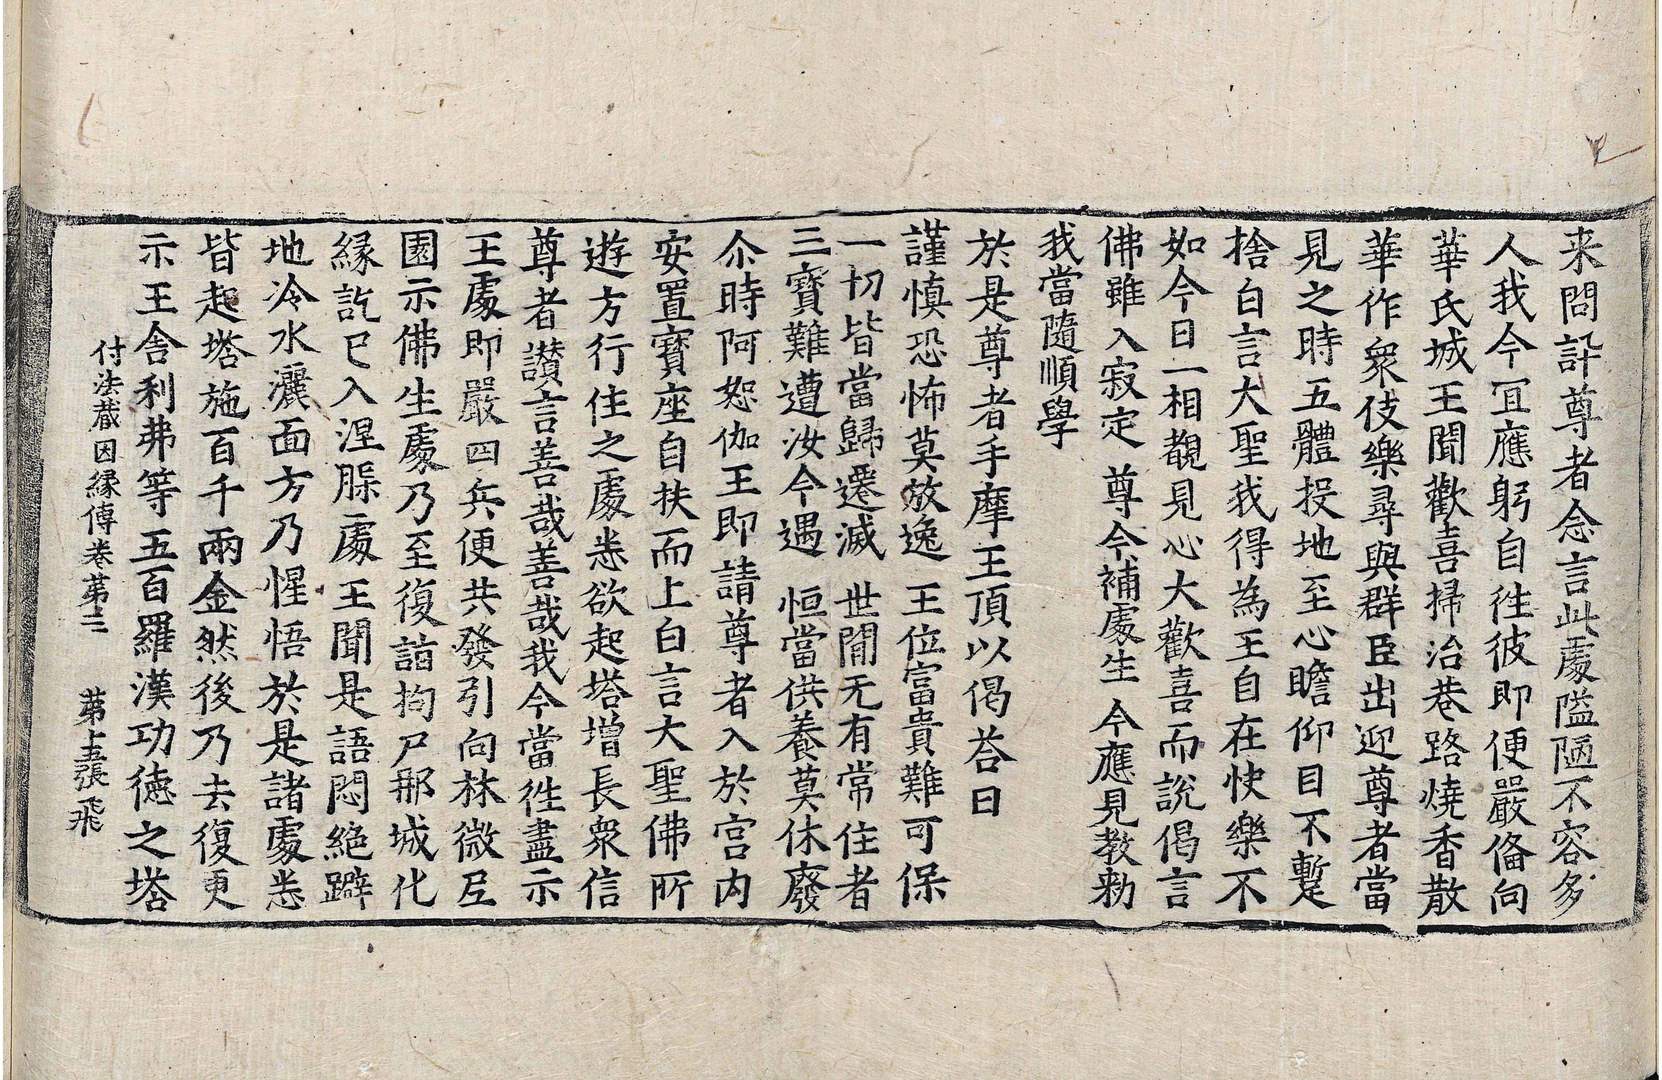 来問訃尊者念言此處隘陋不容多
人我今宜應躬自徃彼即便嚴俻向
華氏城王聞歡喜掃治巷路燒香散
華作衆伎樂尋與群臣出迎尊者當
見之時五體投地至心瞻仰目不暫
捨白言大聖我得為王自在快樂不
如今日一相覩見心大歡喜而說偈言
佛雖入寂定 尊今補處生 今應見教勑
我當隨順學
於是尊者手摩王頂以偈荅曰
謹慎恐怖莫放逸 王位富貴難可保
一切皆當歸遷滅 世間无有常住者
三寶難遭汝今遇 恒當供養莫休廢
尒時阿恕伽王即請尊者入於宮内
安置寶座自扶而上白言大聖佛所
遊方行住之處悉欲起塔增長衆信
尊者讃言善哉善哉我今當徃盡示
王處即嚴四兵便共發引向林微尼
園示佛生處乃至復詣拘尸那城化
縁訖已入涅槃處王聞是語悶絶躃
地冷水灑面方乃惺悟於是諸處悉
皆起塔施百千兩金然後乃去復更
示王舍利弗等五百羅漢功德之塔
付法藏因縁傳卷苐三 苐十五張 飛